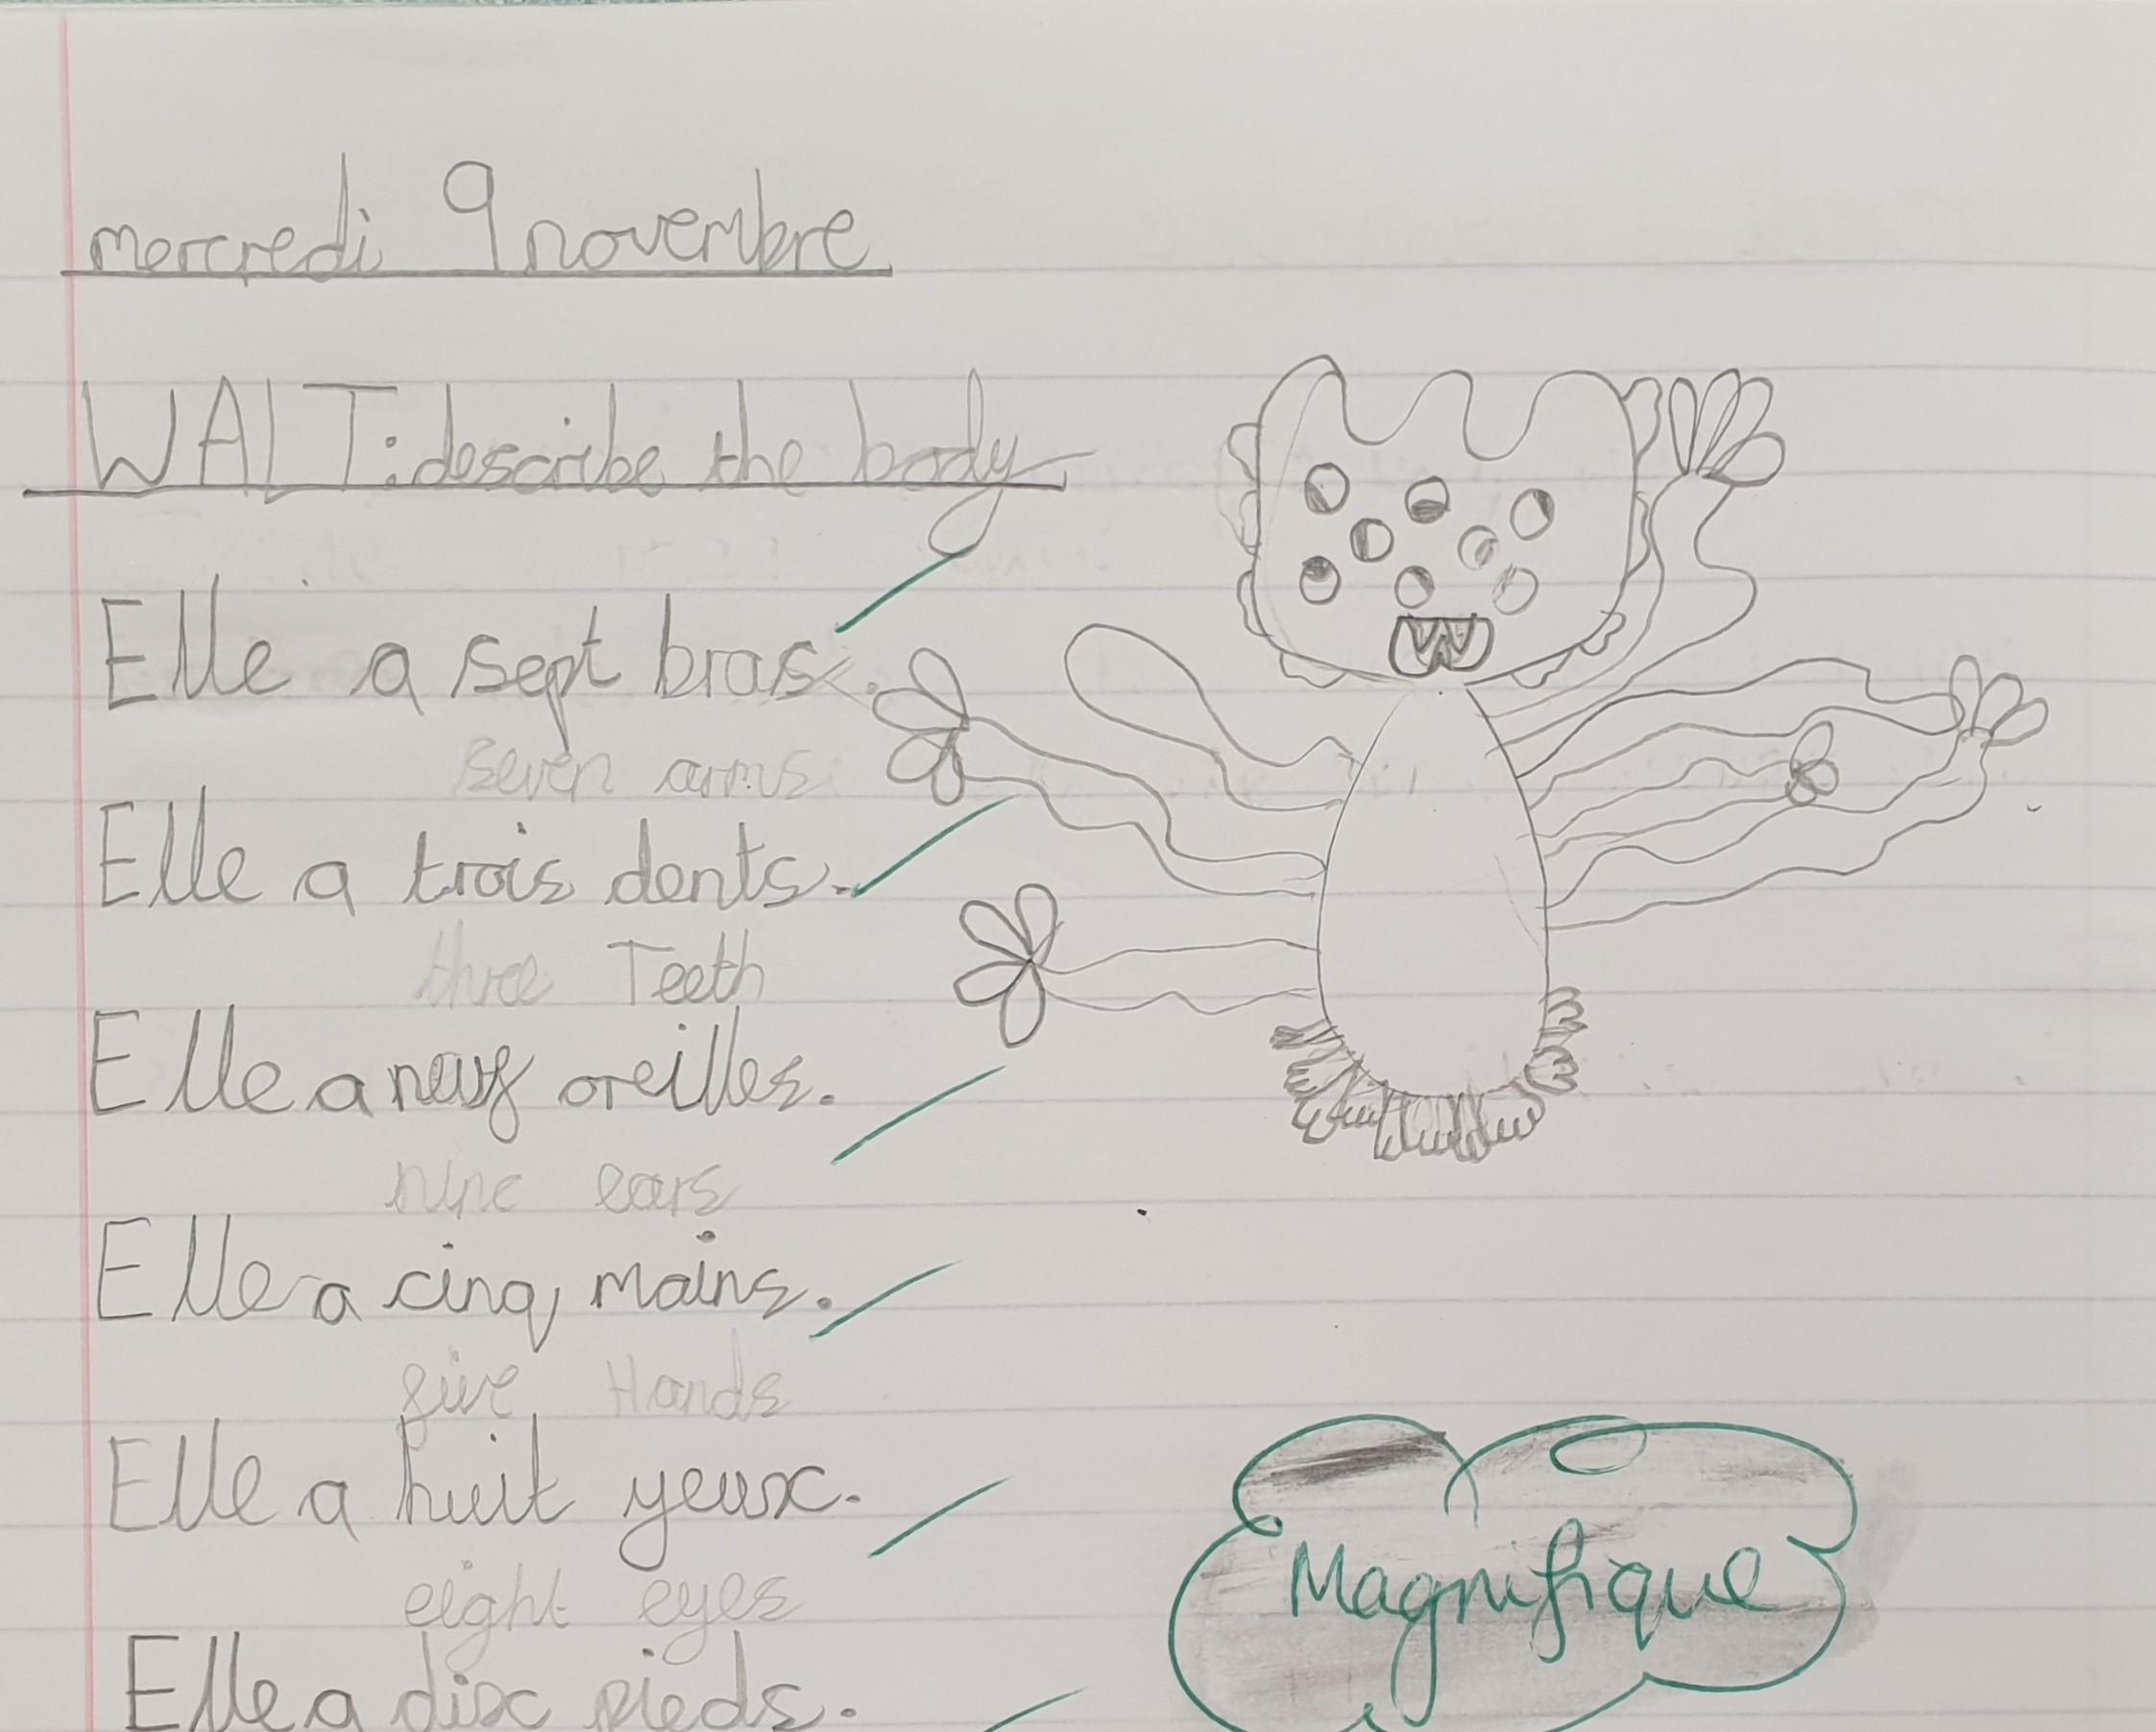 mercredi 9 novembre
WALT: describe the body
Elle a sept bras.
seven arms
Elle a trois dents.
three Teeth
Elle a neuf oreilles.
nine ears
Elle a cinq mains.
five Hands
Elle a huit yeux.
eight eyes
Elle a dix pieds.
Magnifique